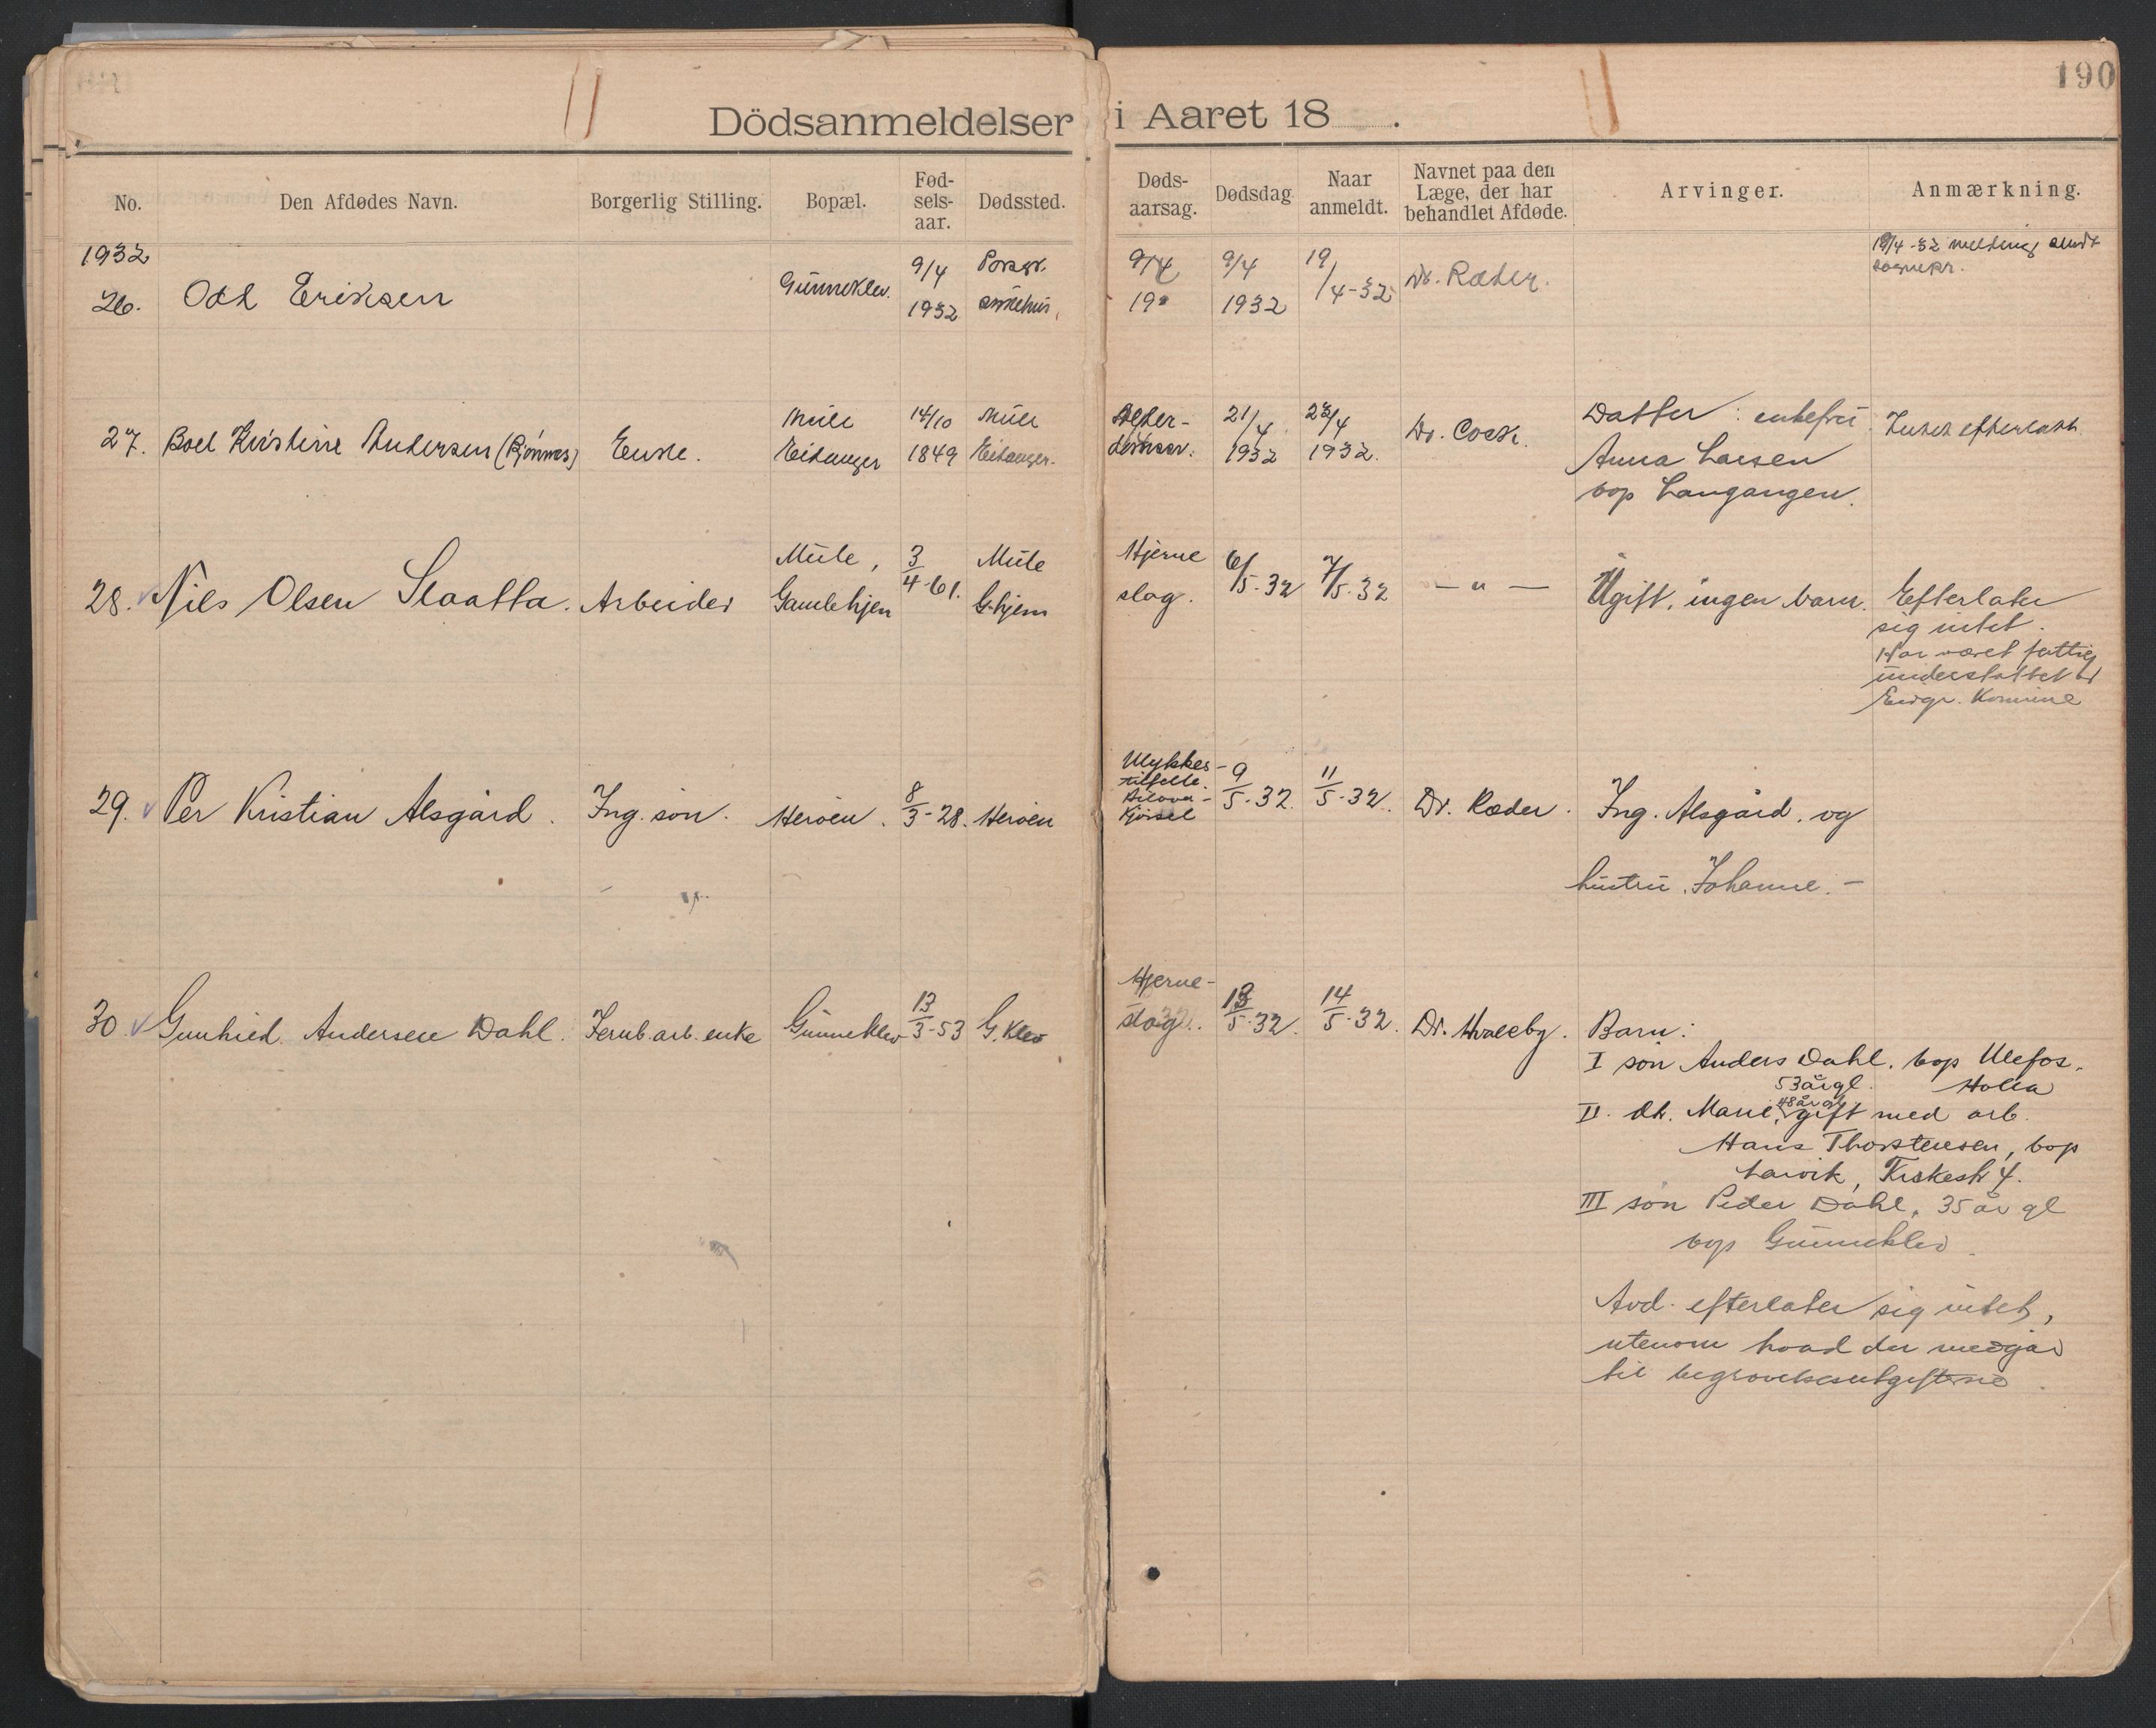 190
Dödsanmeldelser i Aaret 18 .
No.
Den Afdødes Navn.
Borgerlig Stilling.
Bopæl.
Fød-
sels-
aar.
Dødssted.
Døds-
aarsag.
Dødsdag.
Naar
anmeldt.
Navnet paa den
Læge, der har
behandlet Afdøde.
Arvinger.
Anmærkning.
1932
26.
Odd Eriksen
Gunneklev.
9/4
1932
Porsgr.
sykehus.
9/4
19
9/4
1932
19
/4-32
Dr. Ræder.
19/4-32 melding sendt
sognepr.
27.
Boel Kirstine Andersen (Bjønnes)
Enke.
Mule
Eidanger
14/10
1849
Mule
Eidanger.
Alder-
domssv.
21/4
1932
23/4
1932.
Dr. Cock.
Datter: enkefru
Anna Larsen
bop Langangen.
Intet efterlatt
28.
Nils Olsen Slaatta.
Arbeider
Mule,
Gamlehjem
3
4-61.
Mule
G.hjem
Hjerne
slag.
6/5-32
7/5-32
— " —
Ugift, ingen barn.
Efterlater
sig intet.
Har været fattig
understøttet av
Eidgr. Komune
29.
Per Kristian Alsgård.
Ing. søn.
Herøen.
8
3-28.
Herøen
Ulykkes-
tilfelle.
Bilover-
kjørsel
9
5-32.
11
5-32.
Dr. Ræder.
Ing. Alsgård. og
hustru Johanne.-
30.
Gunhild Andersen Dahl.
Jernb.arb. enke
Gunneklev
13
3-53
G.klev
Hjerne-
slag.
13
5-32.
14
5-32.
Dr. Hvaleby.
Barn:
I søn Anders Dahl. bop Ulefos.
53 år gl. Holla
II. dt. Marie, 48 år gl. gift med arb.
Hans Thorstensen, bop
Larvik, Kirkestr 4.
III søn Peder Dahl, 35 år gl
bop Gunneklev.
Avd. efterlater sig intet,
utenom hvad der medgår
til begravelsesutgiftene.